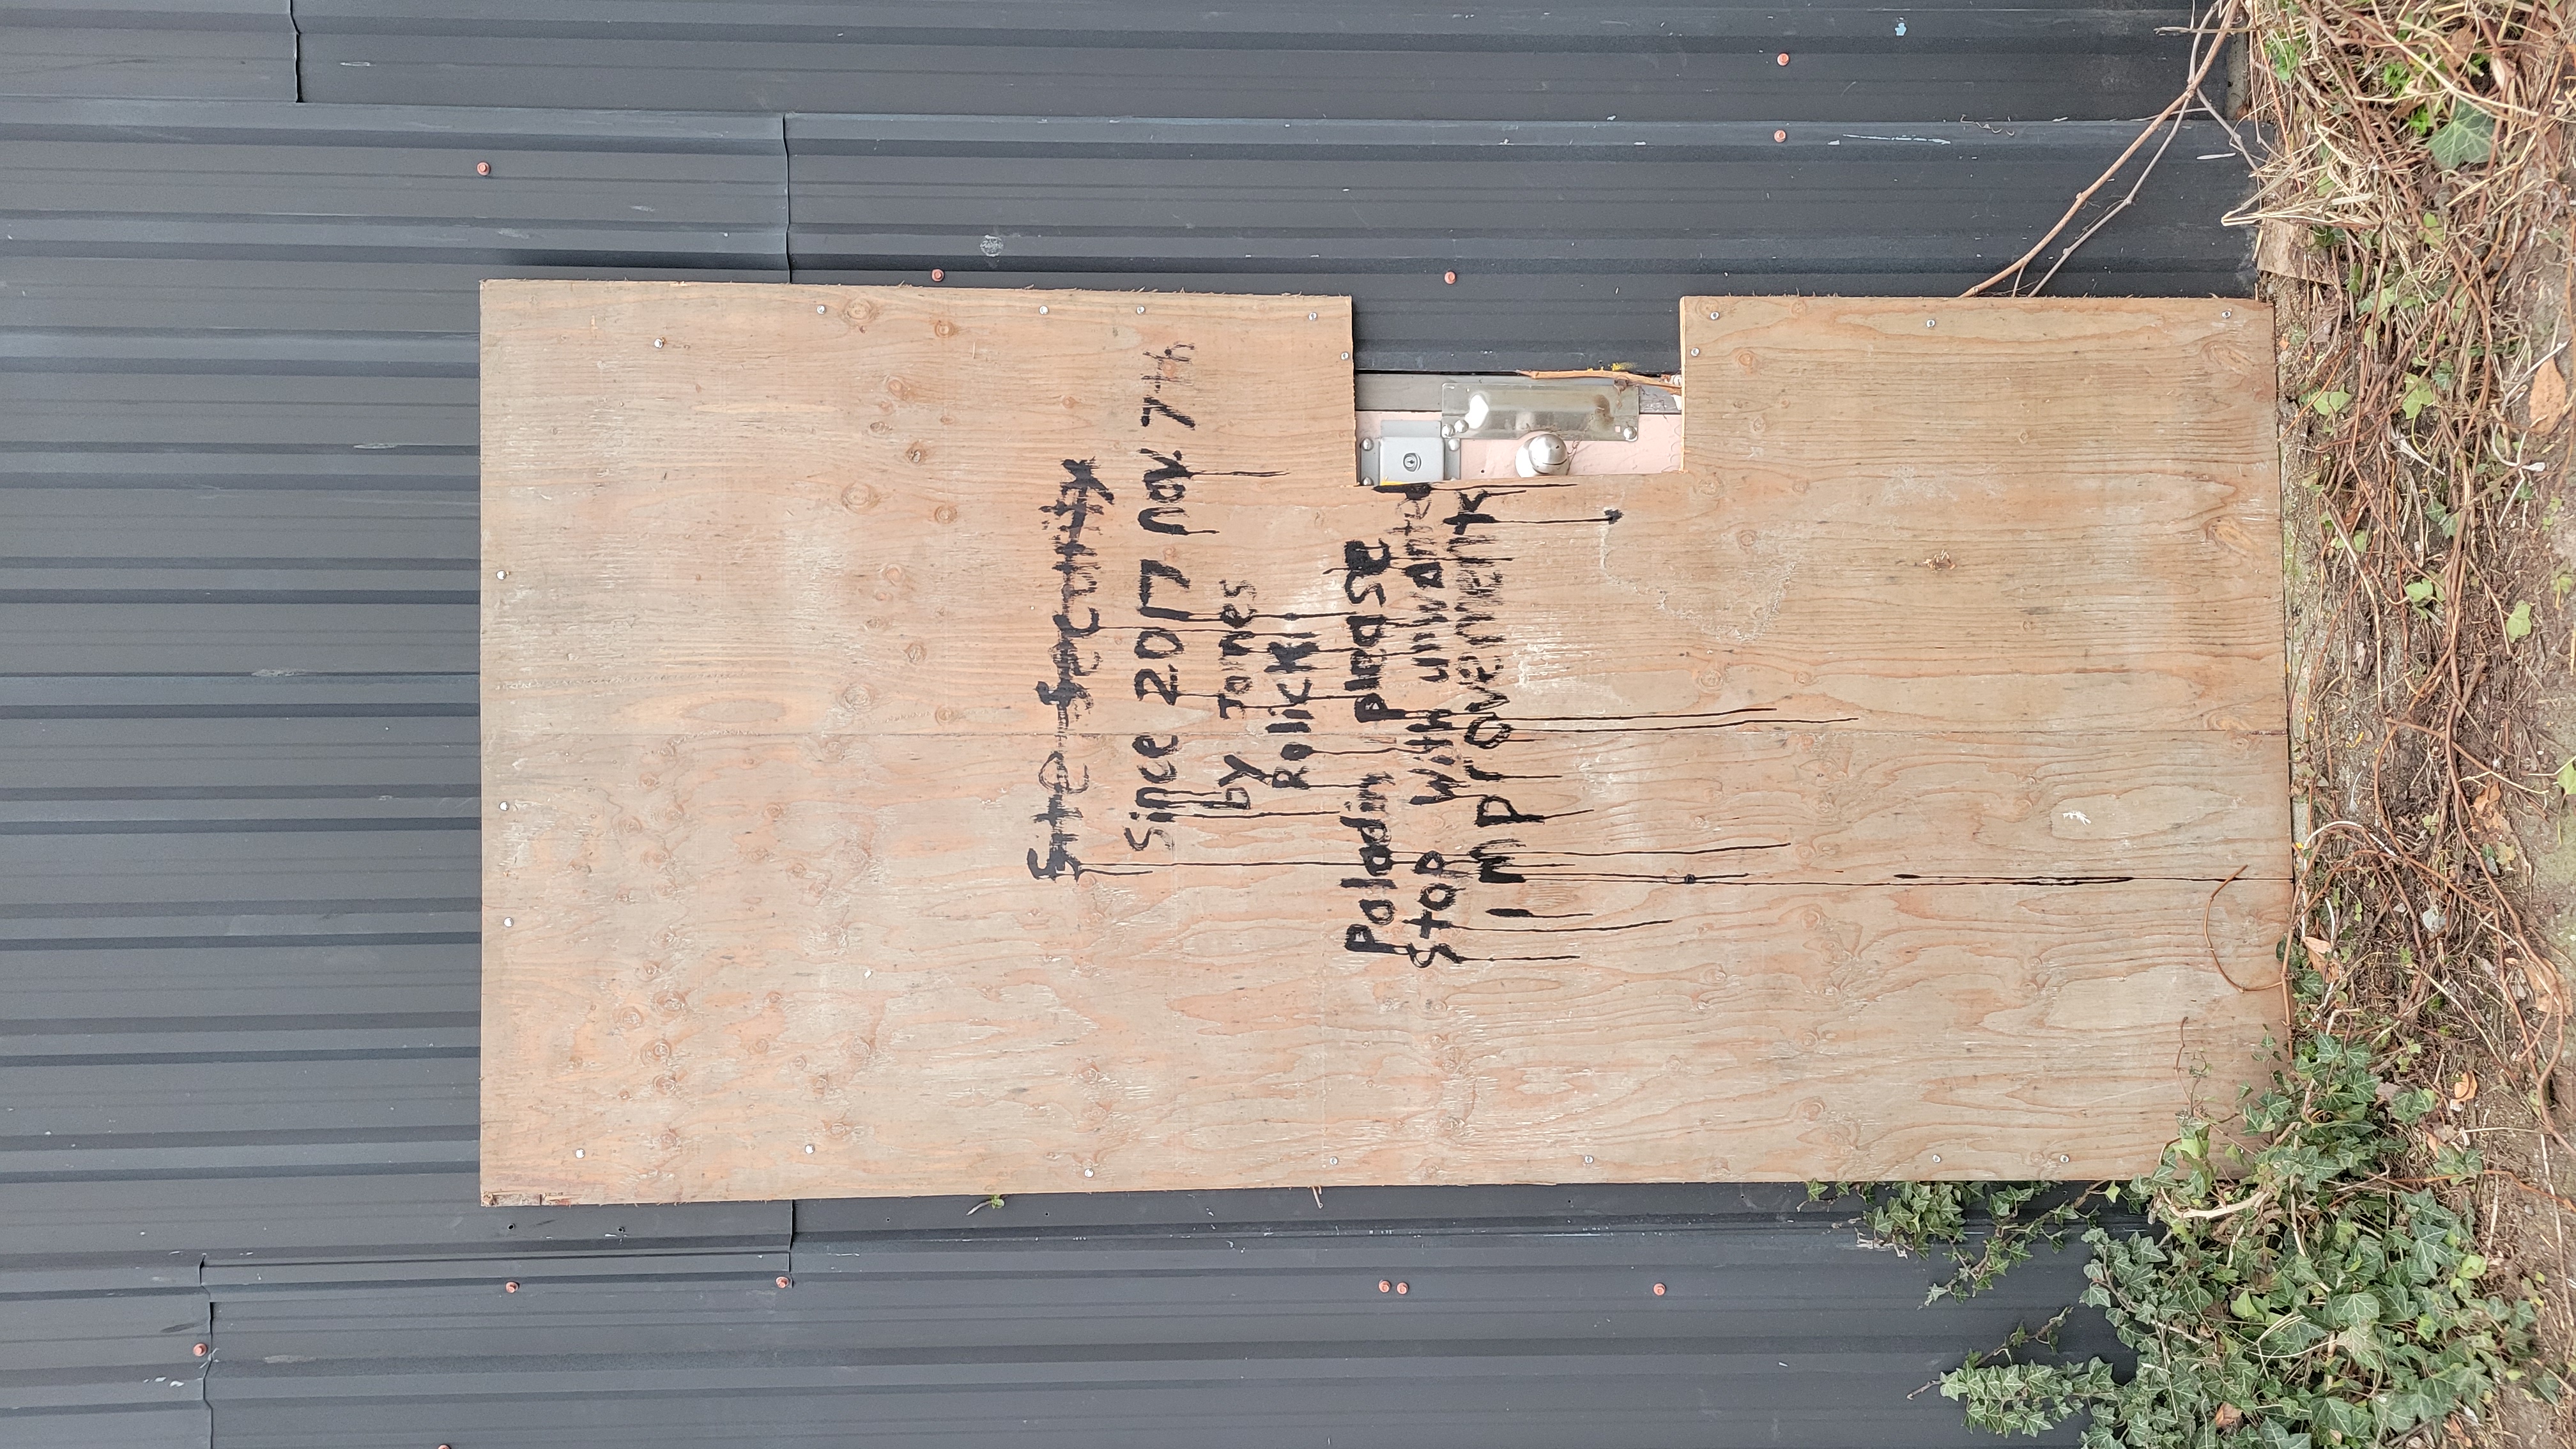 Site Security
Since 2017 Nov. 7th
by James
Rolick
Paladin please
Stop with unwanted
improvements